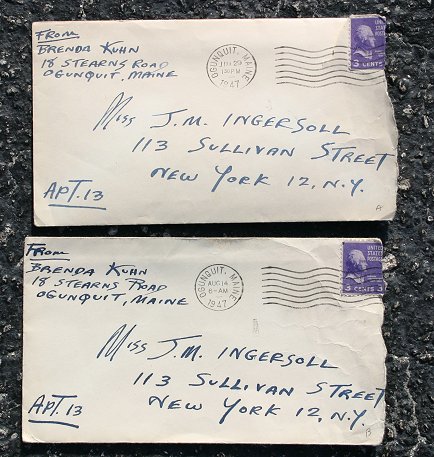 FROM
BRENDA KUHN
18 STEARNS ROAD
OGUNQUIT, MAINE
OGUNQUIT, MAINE
29
1947
3 CENTS
MISS J.M. INGERSOLL
113 SULLIVAN STREET
NEW YORK 12, N.Y.
APT. 13
A
FROM
BRENDA KUHN
18 STEARNS ROAD
OGUNQUIT, MAINE
OGUNQUIT, MAINE
AUG 14
8-AM
1947
UNITED
STATES
POSTAGE
3 CENTS 3
MISS J.M. INGERSOLL
113 SULLIVAN STREET
NEW YORK 12, N.Y.
APT. 13
B